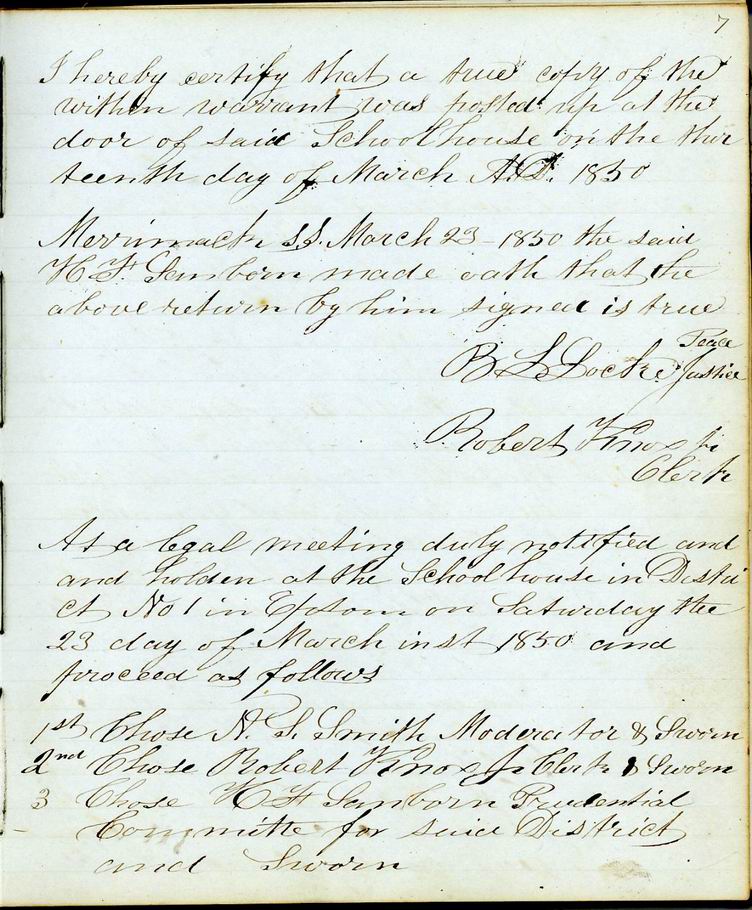 7
I hereby certify that a true copy of the
within warrant was posted up at the
door of said Schoolhouse on the thir
teenth day of March A.D. 1850
Merrimack SS. March 23 - 1850 the said
H F Sanborn made oath that the
above return by him signed is true
B L Locke Justice
Peace
Robert Knox Jr
Clerk
At a legal meeting duly notified and
and holden at the Schoolhouse in Distri
ct No 1 in Epsom on Saturday the
23 day of March inst 1850 and
proceed as follows
1st Chose N. S. Smith Moderator & Sworn
2nd Chose Robert Knox Jr Clerk & Sworn
3 Chose H F Sanborn Prudential
Committe for said District
and Sworn